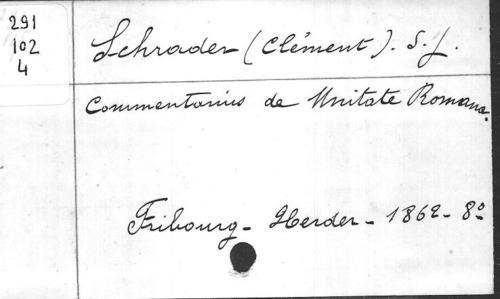 291
102
4
Schrader (Clément). S. J.
Commentarius de Unitate Romana.
Fribourg - Herder - 1862 - 8º